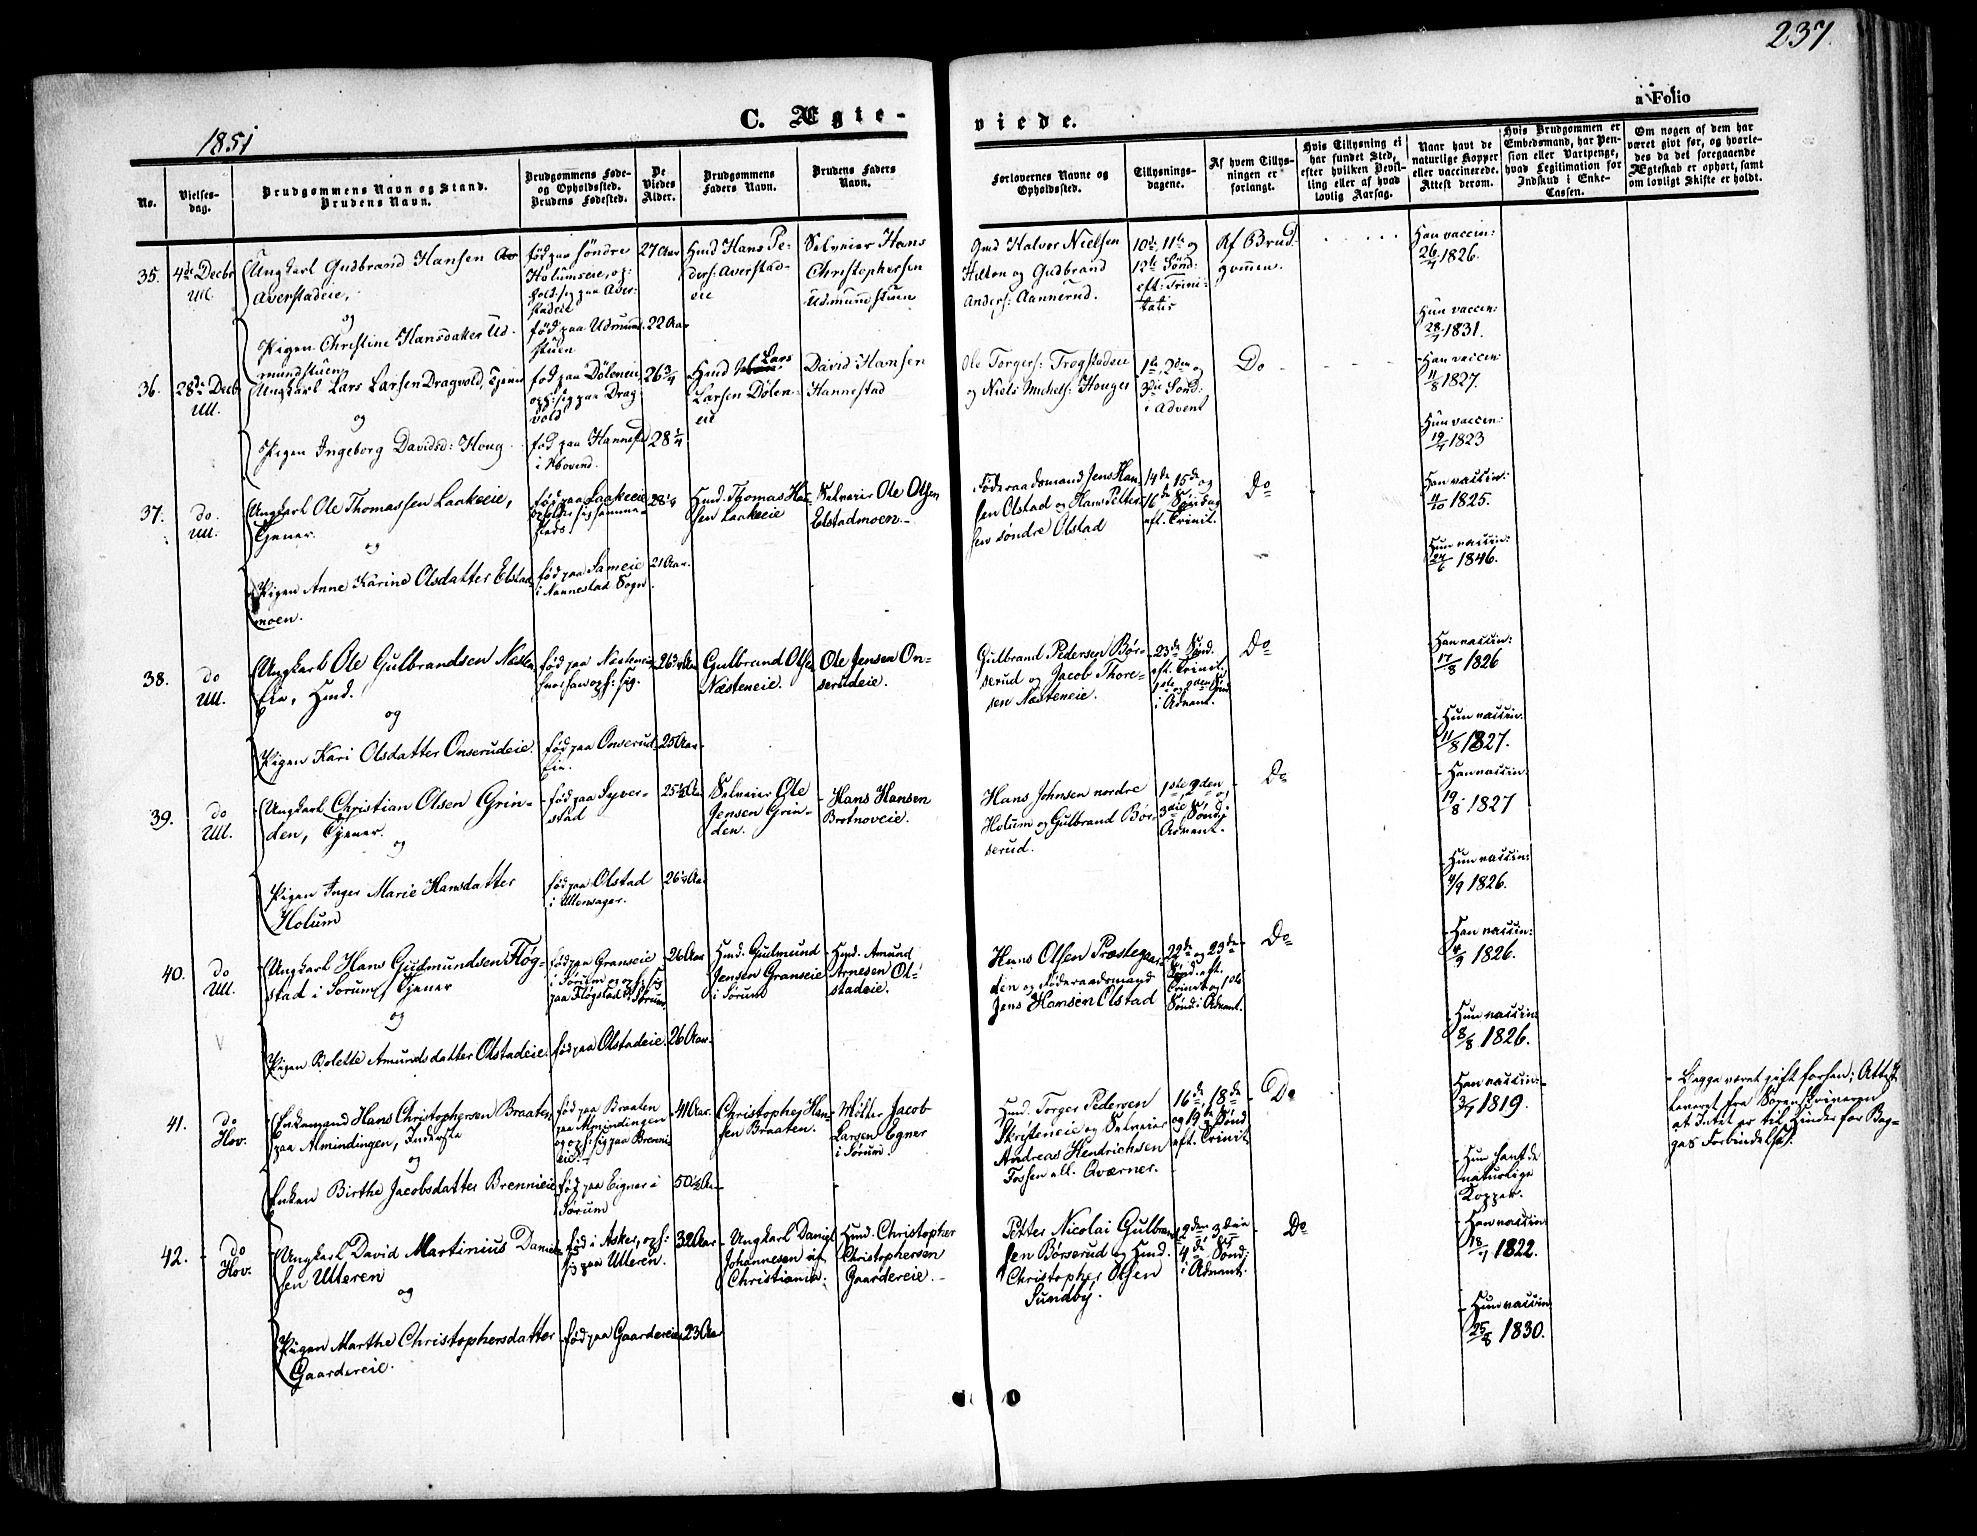 237.
a Folio
1851
C. Ægte-
viede.
No.
Vielses-
dag.
Brudgommens Navn og Stand.
Brudens Navn.
Brudgommens Føde-
og Opholdssted.
Brudens Fødested.
De
Viedes
Alder.
Brudgommens
Faders Navn.
Brudens Faders
Navn.
Forlovernes Navne og
Opholdssted.
Tillysnings-
dagene.
Af hvem Tillys-
ningen er
forlangt.
Hvis Tillysning ei
har fundet Sted,
efter hvilken Bevil-
ling eller af hvad
lovlig Aarsag.
Naar havt de
naturlige Kopper
eller vaccinerede.
Attest derom.
Hvis Brudgommen er
Embedsmand, har Pen-
sion eller Vartpenge,
hvad Legitimation for
Indskud i Enke-
Cassen.
Om nogen af dem har
været givt før, og hvorle-
des da det foregaaende
Ægteskab er ophørt, samt
om lovligt Skifte er holdt.
35.
4de Decbr
Ull.
Ungkarl Gudbrand Hansen
Averstadeie,
og
Pigen Christine Hansdatter Ud-
mundstuen
fød paa søndre
Holumseie, op-
hold: sig paa Aver-
stadeie
fød paa Udmund-
stuen
27 Aar
22 Aar
Hmd Hans Pe-
ders: Averstad-
eie
Selveier Hans
Christophersen
Udmundstuen
Gmd Halvor Nielsen
Hilton og Gudbrand
Anders: Aannerud.
10de, 11te og
12te Sønd:
eft: Trini-
tatis
Af Brud-
gommen.
Han vaccin:
26/4 1826.
Hun vaccin:
28/7 1831.
36.
28de Decbr
Ull.
Ungkarl Lars Larsen Dragvold, Tjener
og
Pigen Ingeborg Davidsd: Houg
fød paa Døleneie,
oph: sig paa Drag-
vold
fød paa Hannest:
i Hovind.
26 3/4
28 1/4
Hmd Lars
Larsen Dølen-
eie
David Hansen
Hannestad
Ole Torgers: Trogstadeie
og Niels Michels: Houger
1ste, 2den og
3die Sønd:
i Advent
Do
Han vaccin:
11/8 1827.
Hun vaccin:
19/7 1823
37.
do
Ull.
Ungkarl Ole Thomassen Laakeeie,
Tjener.
og
Pigen Anne Karine Olsdatter Elstad-
moen.
fød paa Laakeeie
opholder sig samme-
steds.
fød paa Sameie
i Nannestad Sogn
28 1/4
21 Aar.
Hmd. Thomas Han-
sen Laakeeie
Selveier Ole Olsen
Elstadmoen.
Føderaadsmand Jens Han-
sen Olstad og Hans Petter-
sen søndre Olstad
14de 15de og
16de Søndag
eft. Trinit.
Do
Han vaccin:
4/10 1825.
Hun vaccin:
24/6 1846.
38.
do
Ull.
Ungkarl Ole Gulbrandsen Næsten-
Eie, Hmd.
og
Pigen Kari Olsdatter Onserudeie.
fød paa Næsteneie
hvor han oph: sig.
fød paa Onserud-
Eie.
26 3/4 Aar
25 Aar.
Gulbrand Olsen
Næsteneie.
Ole Jensen On-
serudeie.
Gulbrand Pedersen Bør-
serud og Jacob Thore-
sen Næsteneie.
23de Sønd.
eft. Trinit.
1ste og 2den Sønd
i Advent.
Do
Han vaccin:
17/8 1826
Hun vaccin.
11/8 1827.
39.
do
Ull.
Ungkarl Christian Olsen Grin-
den, Tjener.
og
Pigen Inger Marie Hansdatter
Holum
fød paa Syver-
stad
fød paa Olstad
i Ullensager.
25 1/2 Aar
26 1/4 Aar
Selveier Ole
Jensen Grin-
den.
Hans Hansen
Brotnoveie.
Hans Johnsen nordre
Holum og Gulbrand Bør-
serud.
1ste, 2den og
3die Sønd.
Advent.
Do
Han vaccin:
19/8 1827
Hun vaccin:
4/9 1826.
40.
do
Ull.
Ungkarl Hans Gudmundsen Fløg-
stad i Sørum, Tjener
og
Pigen Bolette Amundsdatter Olstadeie.
fød paa Granseie
i Sørum og oph: sig
paa Fløgstad i Sørum.
fød paa Olstadeie.
26 Aar
26 Aar.
Hmd. Gulmund
Jensen Granseie
i Sørum
Hmd. Amund
Arnesen Ol-
stadeie.
Hans Olsen Præstegaar-
den og Føderaadsmand
Jens Hansen Olstad
22de og 23de
Sønd. eft.
Trinit og 1ste
Sønd. i Advent.
Do
Han vaccin:
1826.
Hun vaccin:
8/8 1826.
41.
do
Hov.
Enkemand Hans Christophersen Braaten,
paa Almindingen, Inderste
og
Enken Birthe Jacobsdatter Brennieie
fød paa Braaten
paa Almindingen
og oph: sig paa Brenni-
eie.
fød paa Eigner i
Sørum
41 Aar.
50 1/2 Aar
Christopher Han-
sen Braaten.
Møller Jacob
Larsen Egner
i Sørum.
Hmd. Torger Pedersen
og Selveier
Andreas Hendrichsen
Fossen ell. Qværner.
16de, 18de
og 19de Sønd
eft. Trinit
Do
Han vaccin:
3/7 1819.
Hun havt de
naturlige
Kopper.
Begge været gift forhen; Attest
leveret fra Sorenskriveren
at Intet er til Hinder for Beg-
ges Forbindelse.
42.
do
Hov.
Ungkarl David Martinius Daniel-
sen Ulleren
og
Pigen Marthe Christophersdatter
Gaardereie.
fød i Asker, oph:
sig paa Ulleren.
fød paa Gaardereie
32 Aar
23 Aar
Ungkarl Daniel
Johannesen af
Christiania.
Hmd. Christopher
Christophersen
Gaardereie.
Petter Nicolai Gulbrand-
sen Børserud og Hmd.
Christopher Olsen
Sundby.
2den 3die
4de Sønd:
i Advent.
Do
Han vaccin
18/7 1822.
Hun vaccin
25/8 1830.